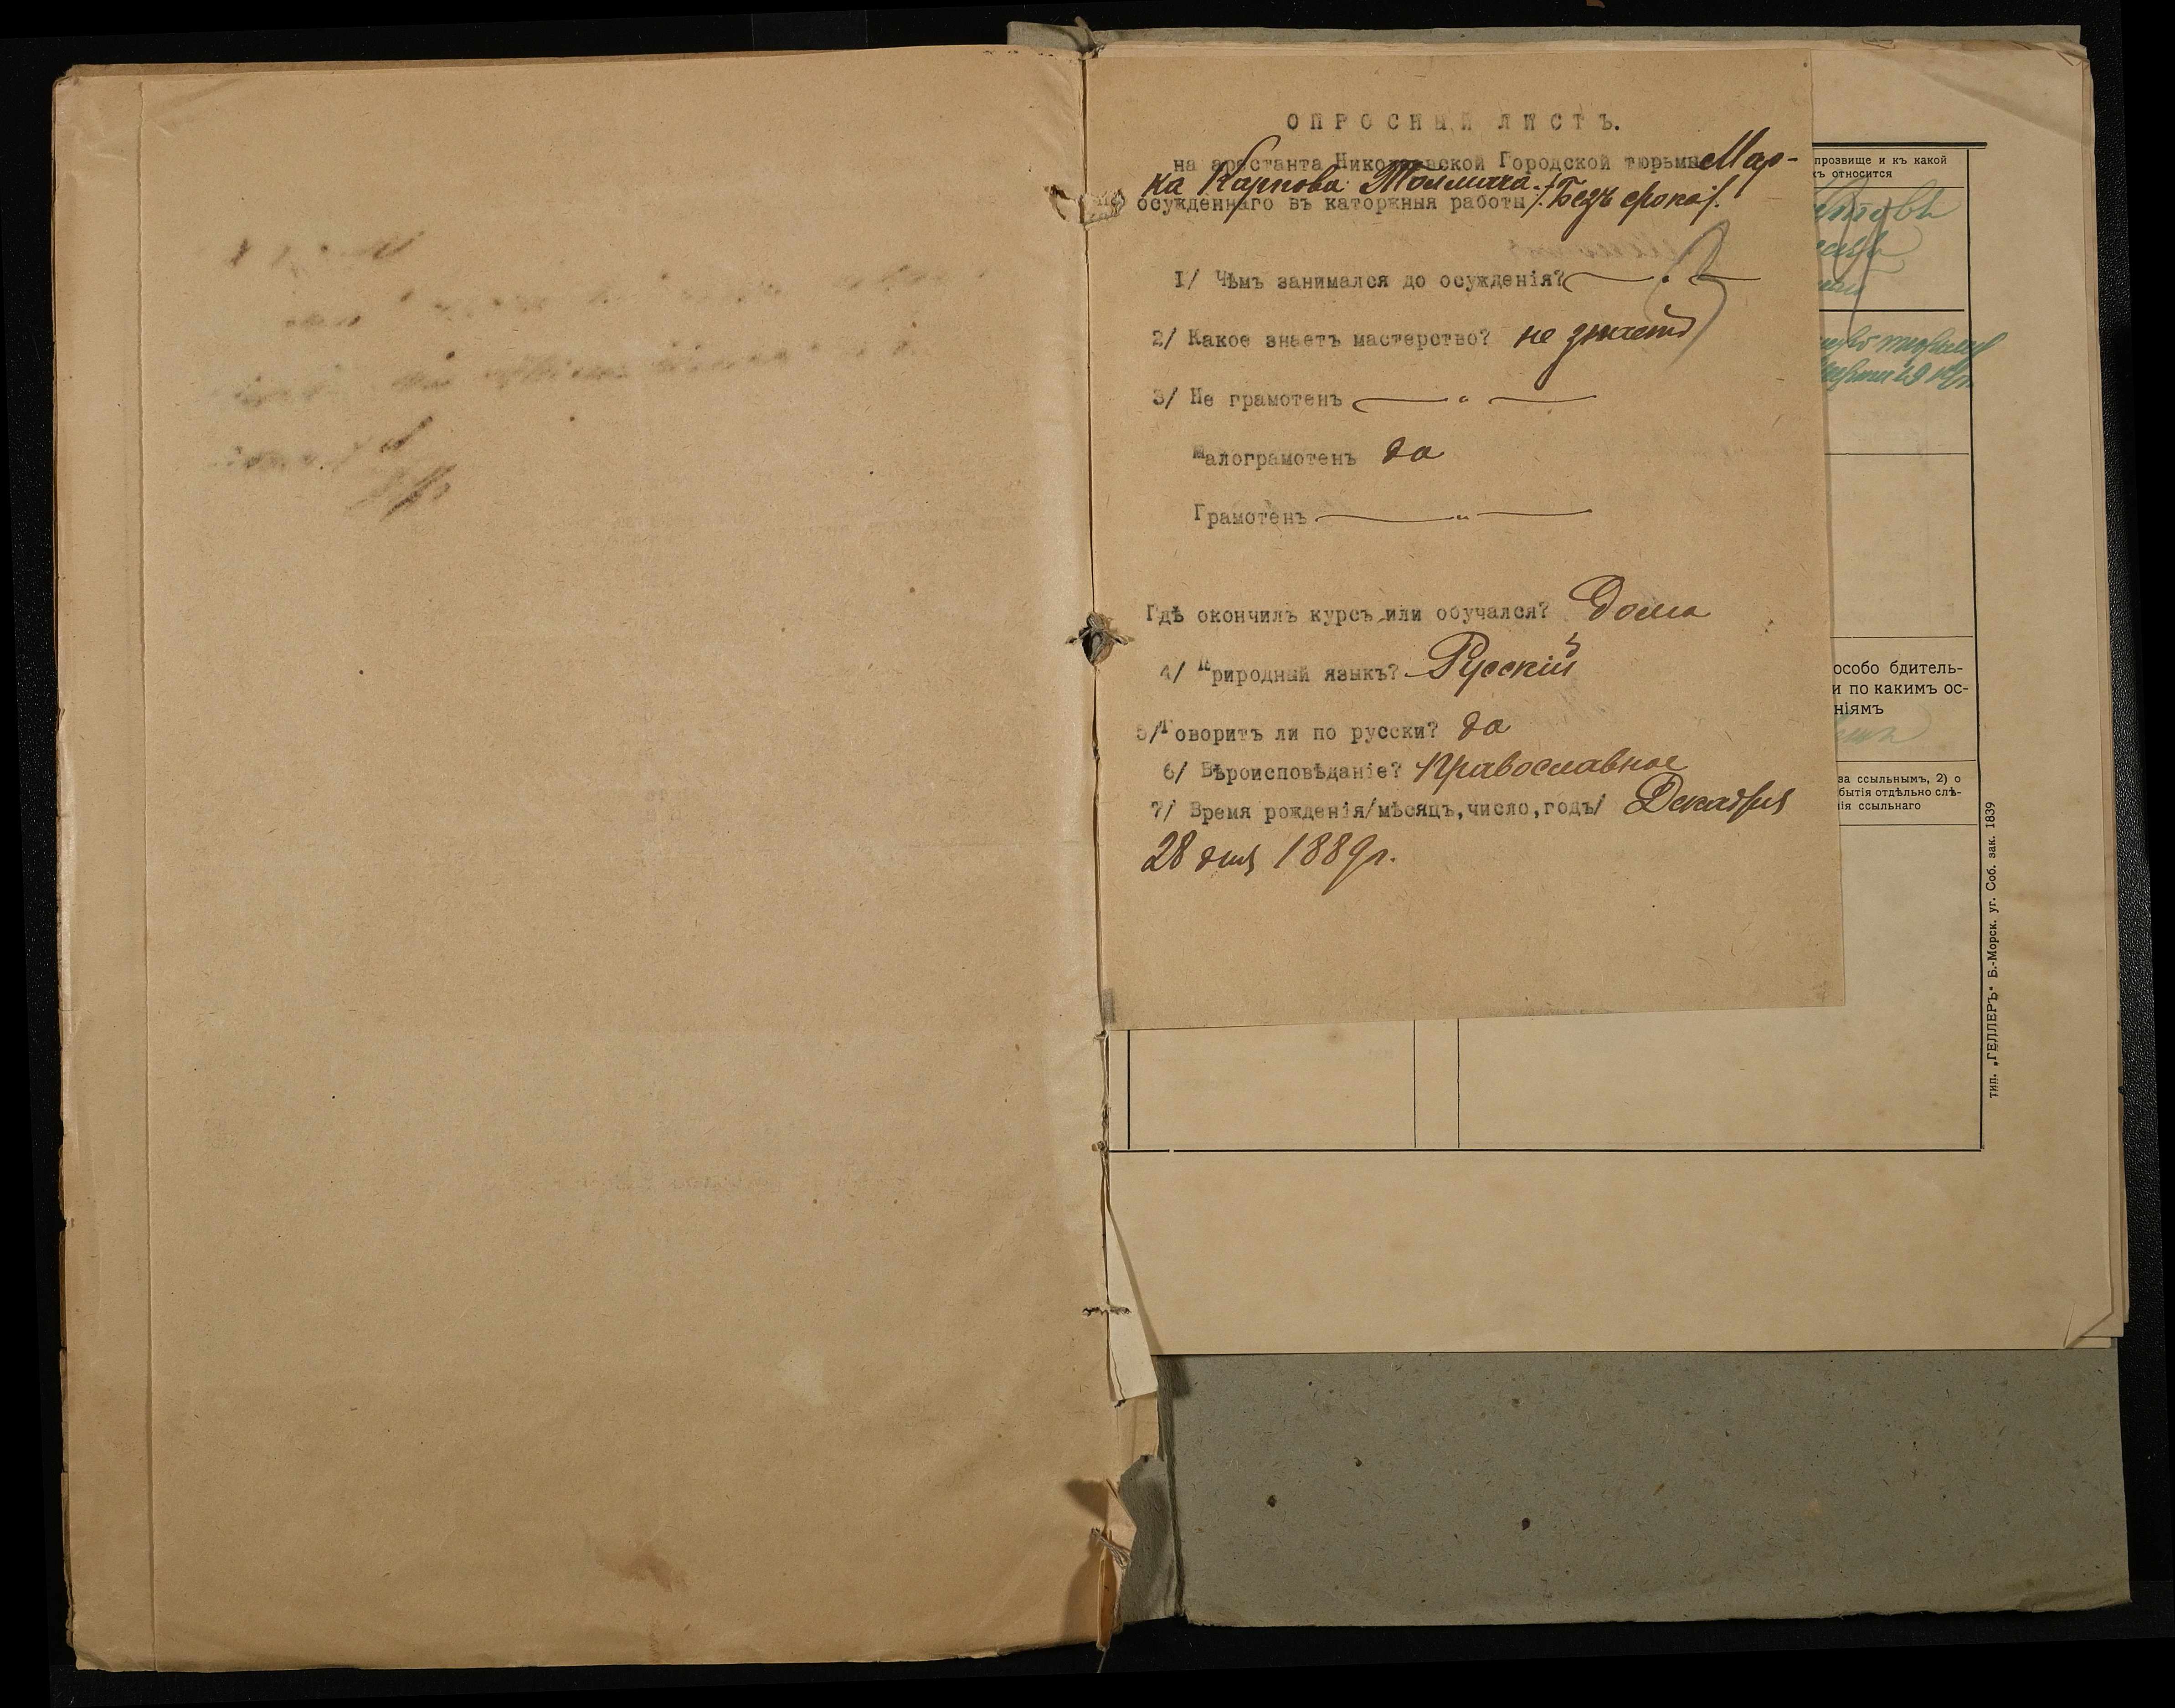 ОПРОСНЫЙ ЛИСТЪ.
на арестанта Николаевской Городской тюрьмы Мар-
ка Карпова
осужденнаго въ каторжныя работы /Безъ срока/.
1/ Чѣмъ занимался до осужденія? — " —
2/ Какое знаетъ мастерство? не знаетъ
3/ Не грамотенъ — " —
Малограмотенъ да
Грамотенъ — " —
Гдѣ окончилъ курсъ или обучался? Дома
4/ Природный языкъ? Русскій
5/ Говоритъ ли по русски? да
6/ Вѣроисповѣданіе? Православное
7/ Время рожденія/мѣсяцъ,число,годъ/ Декабря
28 дня 1889 г.
прозвище и къ какой
относится
особо бдитель-
и по какимъ ос-
ніямъ
за ссыльнымъ, 2) о
бытія отдѣльно слѣ-
нія ссыльнаго
тип. „ГЕЛЛЕРЪ" Б.-Морск. уг. Соб. зак. 1839